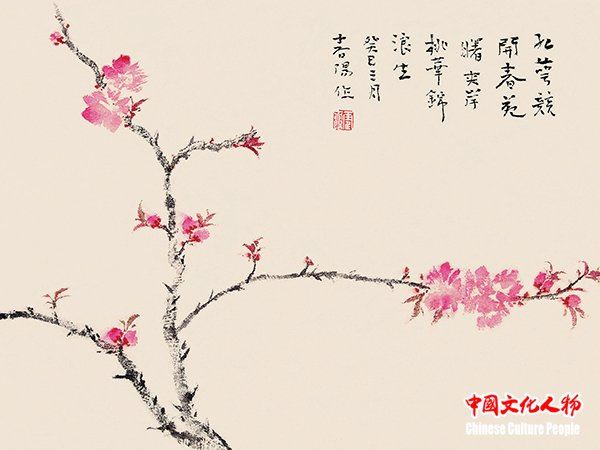 紅萼競
開春苑
曙夾岸
桃華錦
浪生
癸巳三月
春陽作
中國文化人物
Chinese Culture People